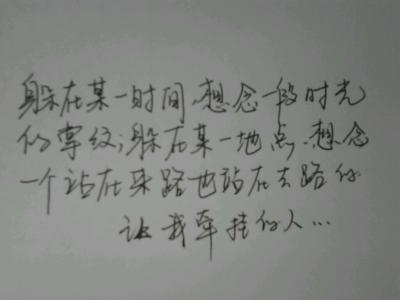 躲在某一时间,想念一段时光
的掌纹;躲在某一地点,想念
一个站在来路也站在去路的
让我牵挂的人...